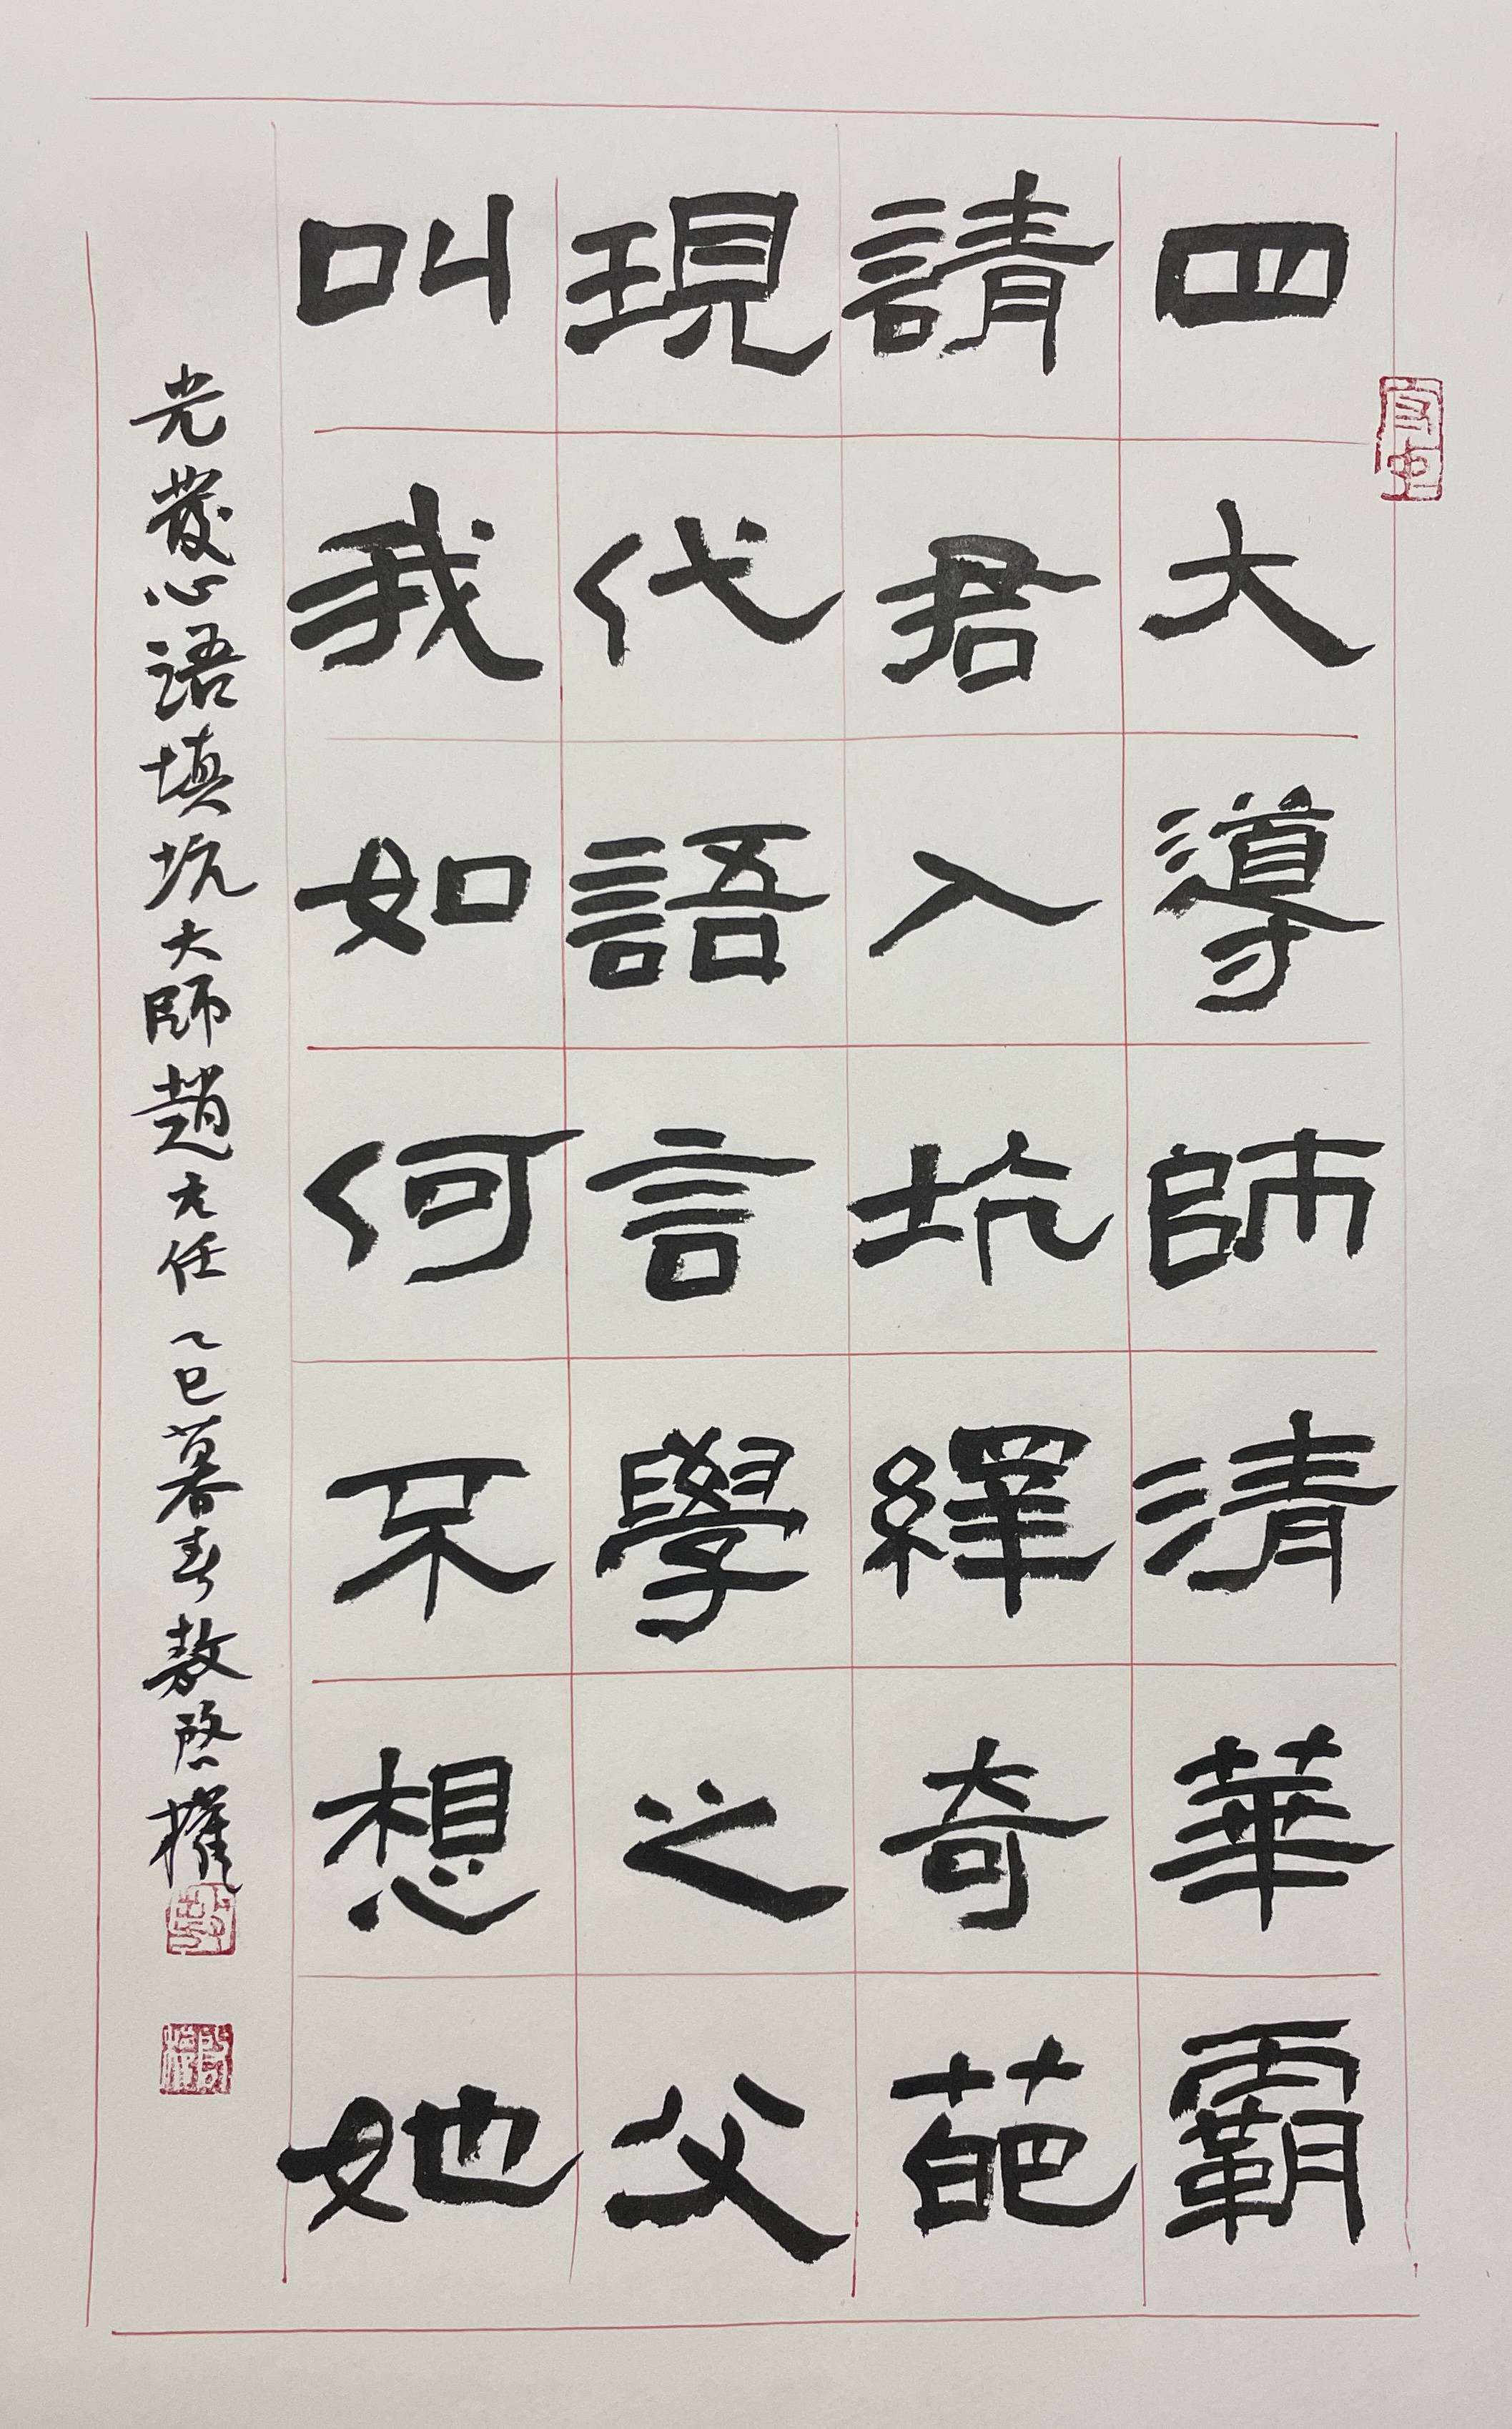 四大導師清華霸
請君入坑繹奇葩
現代語言學之父
叫我如何不想她
光發心語填坑大師趙元任 乙巳暮春敖啓權